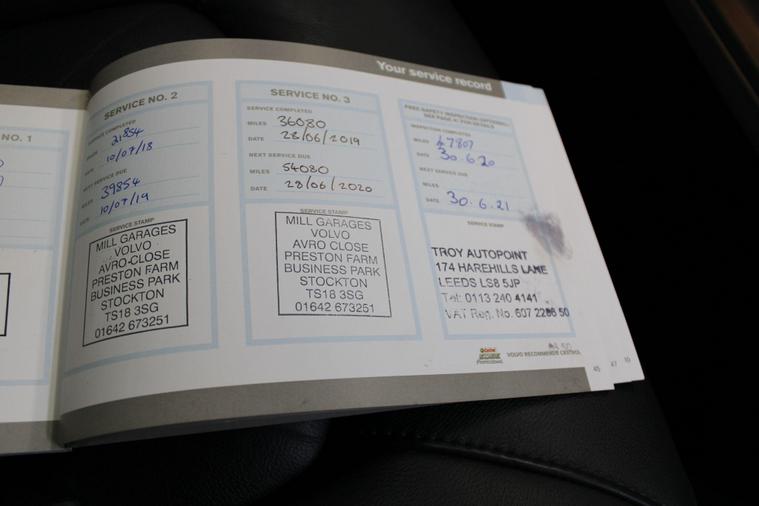 Your service record
NO. 1
SERVICE NO. 2
SERVICE COMPLETED
21854
DATE 10/07/18
NEXT SERVICE DUE
39854
DATE 10/07/19
SERVICE STAMP
MILL GARAGES
VOLVO
AVRO CLOSE
PRESTON FARM
BUSINESS PARK
STOCKTON
TS18 3SG
01642 673251
SERVICE NO. 3
SERVICE COMPLETED
MILES 36080
DATE 28/06/2019
NEXT SERVICE DUE
MILES 54080
DATE 28/06/2020
SERVICE STAMP
MILL GARAGES
VOLVO
AVRO CLOSE
PRESTON FARM
BUSINESS PARK
STOCKTON
TS18 3SG
01642 673251
FREE SAFETY INSPECTION (OPTIONAL)
SEE PAGE 4 FOR DETAILS
INSPECTION COMPLETED
MILES 47807
DATE 30.6.20
NEXT SERVICE DUE
MILES
DATE 30.6.21
SERVICE STAMP
TROY AUTOPOINT
174 HAREHILLS LANE
LEEDS LS8 5JP
Tel: 0113 240 4141
VAT Reg. No. 607 2286 50
Castrol
VOLVO RECOMMENDS CASTROL
45
47